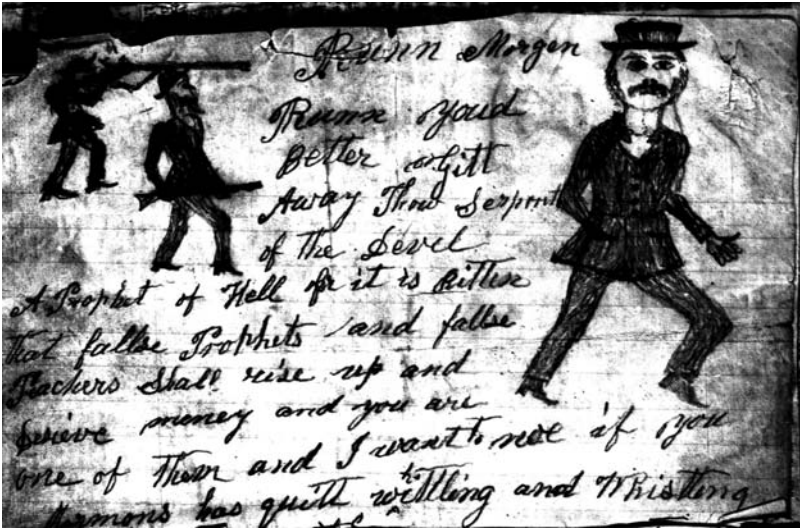 Runn Morgen
Runn youd
Better Gitt
Away Thow Serpent
of the Devel
A Prophet of Hell for it is Ritten
that fallse Prophets and fallse
Teachers Shall rise up and
Deceve money and you are
one of them and I want to not if you
Mormons has quitt whittling and Whistling